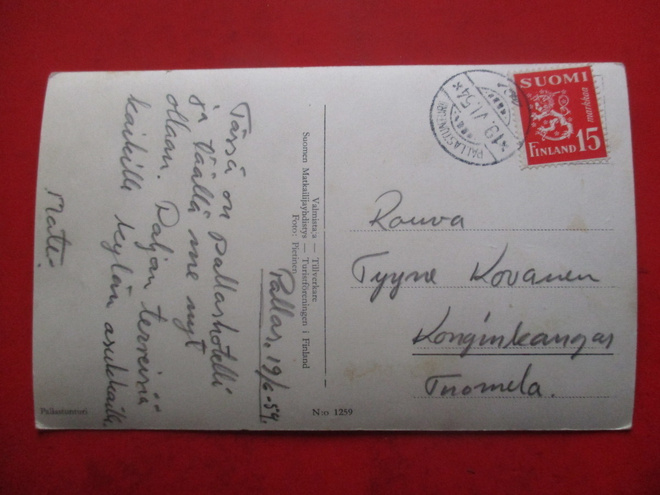 Pallas, 19/6-54.
Tässä on Pallashotelli
ja täällä me nyt
ollaan. Paljon terveisiä
kaikille kylän asukkaille.
Matti
Pallastunturi
Valmistaja — Tillverkare
Suomen Matkailijayhdistys — Turistföreningen i Finland
Foto: Pietinen
N:o 1259
PALLASTUNTURI
19.VI.54
SUOMI
markkaa
FINLAND 15
Rouva
Tyyne Kovanen
Konginkangas
Tuomela.